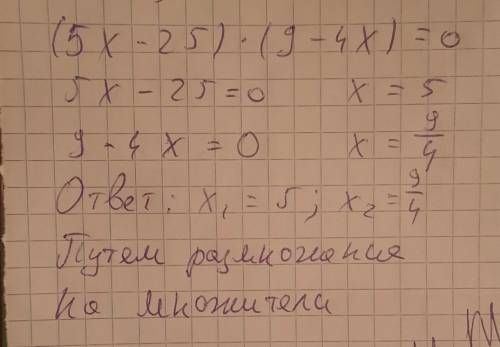 (5x-25)·(9-4x)=0
5x-25=0 x=5
9-4x=0 x=9/4
Ответ: x₁=5; x₂=9/4
Путем размножения
на множители